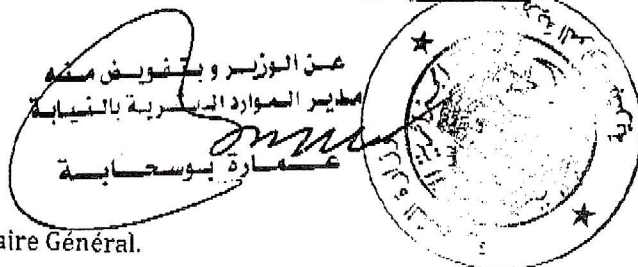 عن الوزير و بتفويض منه
مدير الموارد البشرية بالنيابة
عمارة بوسحابة
aire Général.